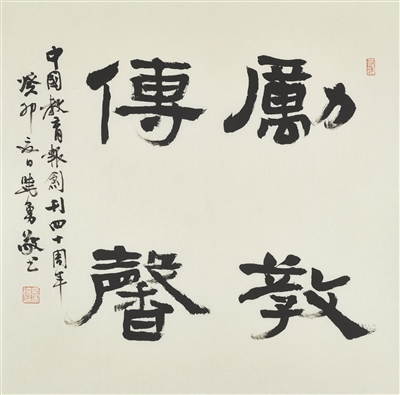 勵教
傳馨
中國教育報創刊四十周年
癸卯夏日曉勇敬书